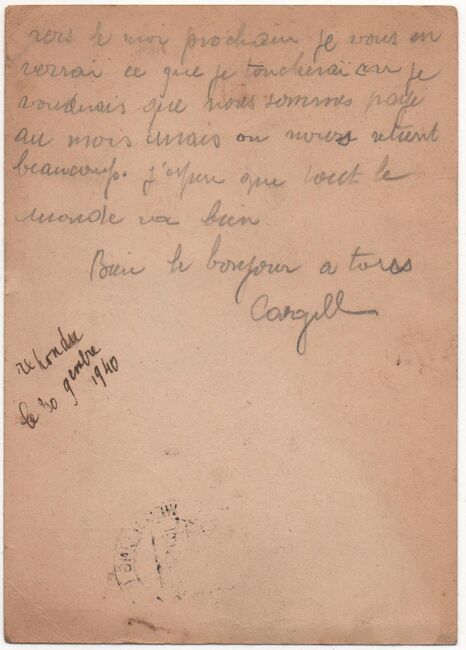 vers le moi prochain je vous en
verrai ce que je toucherai car je
voudrais que nous sommes payé
au mois mais on nous retient
beaucoup. j'espere que tout le
monde va bien
Bien le bonjour a tous
Cargill
repondu
le 30 9enbre
1940